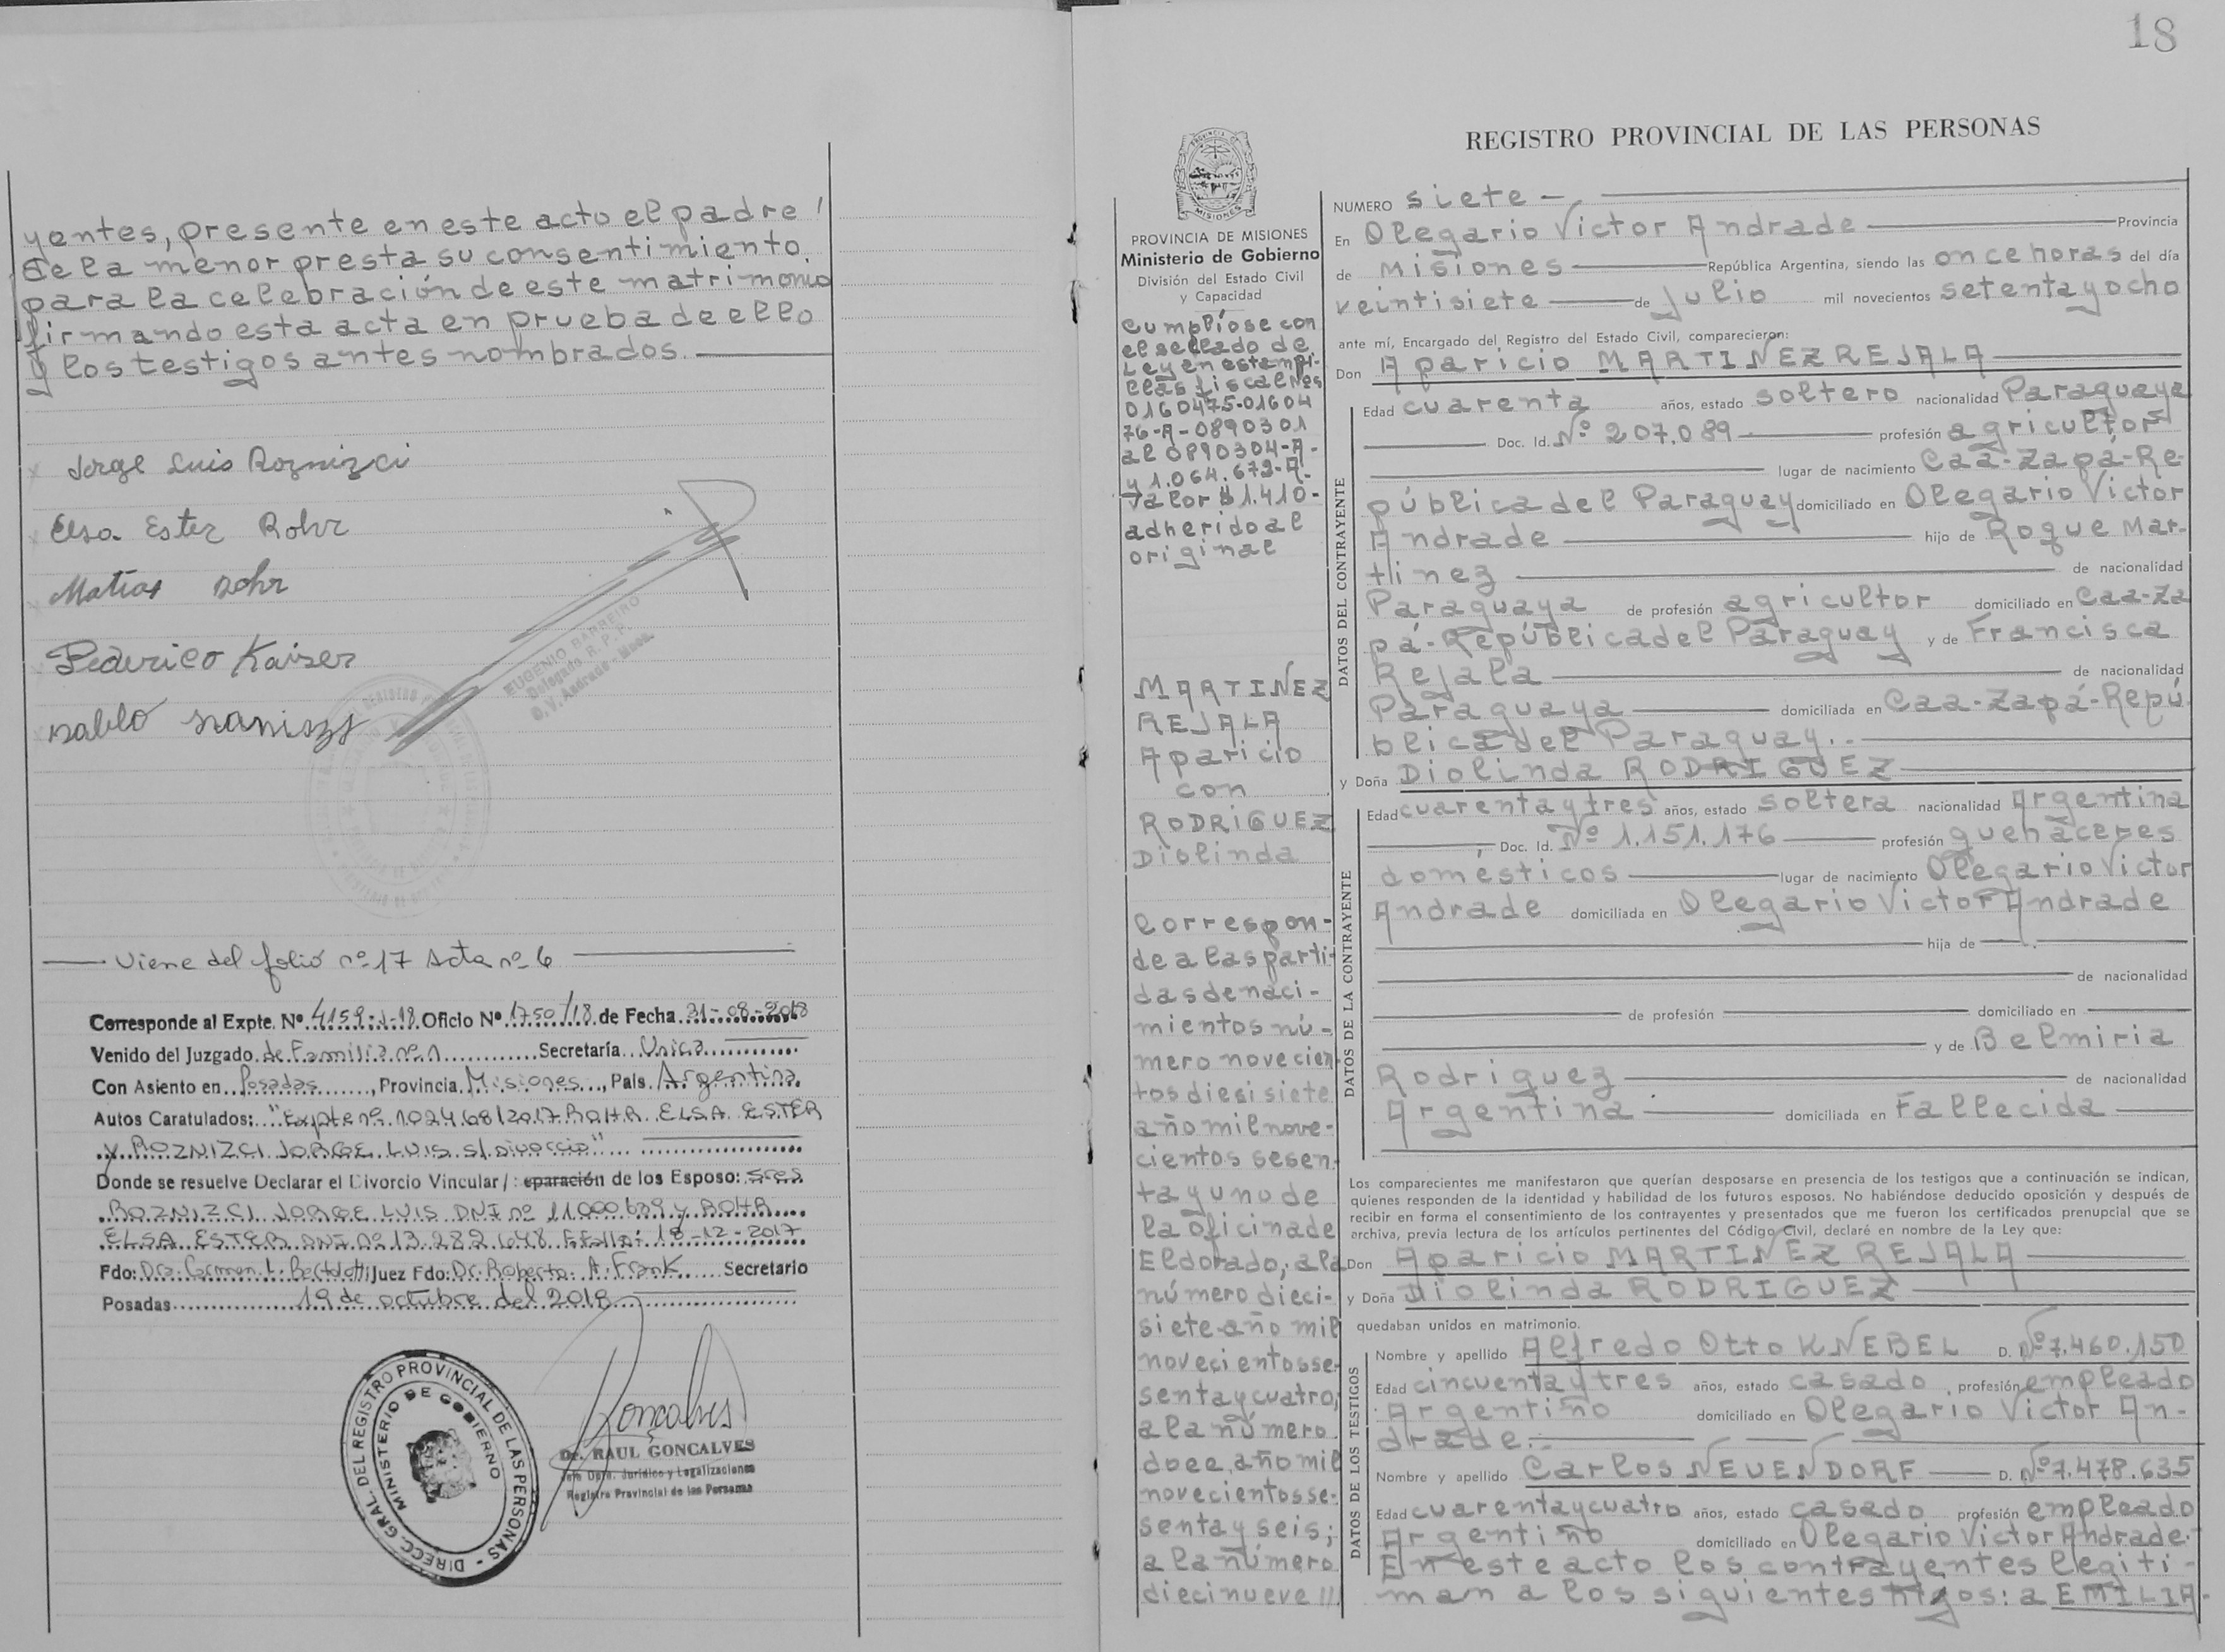 yentes, presente en este acto el padre
de la menor presta su consentimiento
para la celebración de este matrimonio
firmando esta acta en prueba de ello
y los testigos antes nombrados.
Jorge Luis Roznizci
Elsa Ester Rohr
Matías Rohr
Federico Kaiser
Pablo
EUGENIO BARREIRO
Delegado R. P. P.
O. V. Andrade - Mnes.
Viene del folio nº 17 Acta nº 6
Corresponde al Expte. Nº 4159-J-18 Oficio Nº 1750/18 de Fecha 31-08-2018
Venido del Juzgado de Familia nº 1 Secretaría Unica
Con Asiento en Posadas, Provincia Misiones, País Argentina
Autos Caratulados: "Expte nº 102468/2017 ROHR ELSA ESTER
y ROZNIZCI JORGE LUIS s/ Divorcio"
Donde se resuelve Declarar el Divorcio Vincular/: eparación de los Esposo: Sres
ROZNIZCI JORGE LUIS DNI nº 11.000.639 y ROHR
ELSA ESTER DNI nº 13.282.648 F.Fallo: 18-12-2017
Fdo: Dra. Carmen L. Bertolotti Juez Fdo: Dr. Roberto A. Frank Secretario
Posadas 19 de octubre del 2018
DIRECC. GRAL. DEL REGISTRO PROVINCIAL DE LAS PERSONAS
MINISTERIO DE GOBIERNO
Goncalves
Dr. RAUL GONCALVES
Jefe Dpto. Jurídico y Legalizaciones
Registro Provincial de las Personas
18
REGISTRO PROVINCIAL DE LAS PERSONAS
PROVINCIA DE MISIONES
PROVINCIA DE MISIONES
Ministerio de Gobierno
División del Estado Civil
y Capacidad
Cumplíose con
el sellado de
Ley en estampi-
llas fiscal Nos
0160475-01604
76-A-0890301
al 0890304-A-
y 1.064.672-A-
Valor $ 1.410-
adherido al
original
MARTIÑEZ
REJALA
Aparicio
con
RODRIGUEZ
Diolinda
Correspon-
de a las parti-
das de naci-
mientos nú-
mero novecien
tos diesisiete
año mil nove-
cientos sesen-
ta y uno de
la oficina de
Eldorado; a la
número dieci-
siete año mil
novecientos se-
senta y cuatro;
a la número
doce, año mil
novecientos se-
senta y seis;
a la número
diecinueve //
NUMERO siete -
En Olegario Victor Andrade Provincia
de Misiones República Argentina, siendo las once horas del día
veintisiete de Julio mil novecientos setenta y ocho
ante mí, Encargado del Registro del Estado Civil, comparecieron:
Don Aparicio MARTIÑEZ REJALA
DATOS DEL CONTRAYENTE
Edad cuarenta años, estado soltero nacionalidad Paraguaya
Doc. Id. Nº 207.089 profesión agricultor
lugar de nacimiento Caa-Zapá-Re-
pública del Paraguay domiciliado en Olegario Victor
Andrade hijo de Roque Mar-
tinez de nacionalidad
Paraguaya de profesión agricultor domiciliado en Caa-Za
pá-República del Paraguay y de Francisca
Rejala de nacionalidad
Paraguaya domiciliada en Caa-Zapá-Repú
blica del Paraguay..-
y Doña Diolinda RODRIGUEZ
DATOS DE LA CONTRAYENTE
Edad cuarenta y tres años, estado soltera nacionalidad Argentina
Doc. Id. Nº 1.151.176 profesión quehaceres
domésticos lugar de nacimiento Olegario Victor
Andrade domiciliada en Olegario Victor Andrade
hija de
de nacionalidad
de profesión domiciliado en
y de Belmiria
Rodriguez de nacionalidad
Argentina domiciliada en Fallecida
Los comparecientes me manifestaron que querían desposarse en presencia de los testigos que a continuación se indican,
quienes responden de la identidad y habilidad de los futuros esposos. No habiéndose deducido oposición y después de
recibir en forma el consentimiento de los contrayentes y presentados que me fueron los certificados prenupcial que se
archiva, previa lectura de los artículos pertinentes del Código Civil, declaré en nombre de la Ley que:
Don Aparicio MARTIÑEZ REJALA
y Doña Diolinda RODRIGUEZ
quedaban unidos en matrimonio.
DATOS DE LOS TESTIGOS
Nombre y apellido Alfredo Otto KNEBEL D. Nº 7.460.150
Edad cincuenta y tres años, estado casado, profesión empleado
Argentino domiciliado en Olegario Victor An-
drade.-
Nombre y apellido Carlos NEUENDORF D. Nº 7.478.635
Edad cuarenta y cuatro años, estado casado profesión empleado
Argentino domiciliado en Olegario Victor Andrade.-
En este acto los contrayentes legiti-
man a los siguientes hijos: a EMILIA-